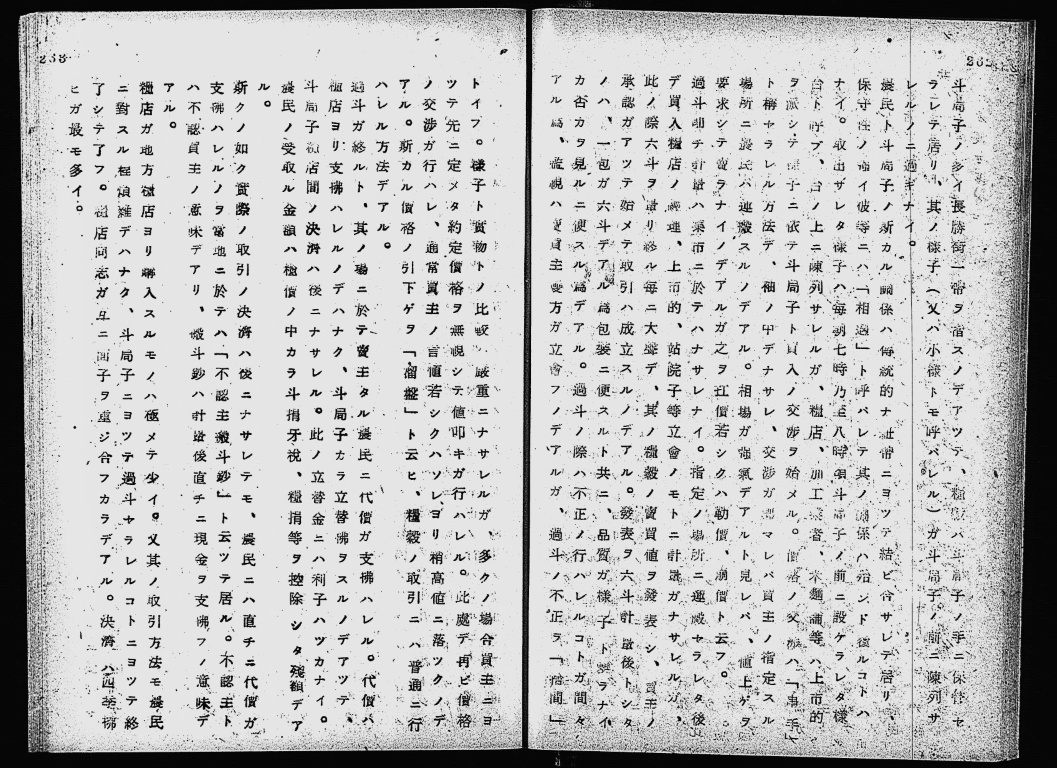 262
斗局子ノ多イ長勝街一帶ヲ當スノデアツテ、糧穀ハ斗局子ノ手ニ保管セ
ラレテ居リ、其ノ樣子(又ハ小樣トモ呼バレル)ガ斗局子ノ前ニ陳列サ
レルノニ過ギナイ。
農民ト斗局子ノ斯カル關係ハ傳統的ナ社會ニヨツテ結ビ合サレテ居リ、
保守性ノ强イ彼等ニハ「相過」ト呼バレテ其ノ關係ハ殆ンド變ルコトハ
ナイ。取出サレタ樣子ハ每朝七時乃至八時頃斗局子ノ前ニ設ケラレタ樣
台ト呼ブ、台ノ上ニ陳列サレルガ、糧店、加工業者、米麵舖等ハ上市的
ヲ派シテ樣子ニ依テ斗局子ト買入ノ交涉ヲ始メル。價格ノ交涉ハ「串手」
ト稱セラレル方法デ、袖ノ中デナサレ、交涉ガマレバ買主ノ指定スル
場所ニ農民ハ運搬スルノデアル。相場ガ强氣デアルト見レバ、値上ゲヲ
要求シテ賣ラナイノデアルガ之ヲ江價若シクハ勒價、崩價ト云フ。
過斗卽チ計量ハ糞市ニ於テハナサレナイ。指定ノ場所ニ運搬セラレタ後
デ買入糧店ノ經理、上市的、站院子等立會ノモトニ計量ガナサレルガ、
此ノ際六斗ヲ量リ終ル每ニ大聲デ、其ノ糧穀ノ賣買値ヲ發表シ、買主ノ
承認ガアツテ始メテ取引ハ成立スルノデアル。發表ヲ六斗計量後トシタ
ノハ、一包ガ六斗デアル爲包裝ニ便スルト共ニ、品質ガ樣子ト異ラナイ
カ否カヲ見ルニ便スル爲デアル。過斗ノ際ハ不正ノ行ハレルコトガ間々
アル爲、監視ハ賣買主雙方ガ立會フノデアルガ、過斗ノ不正ヲ「倍間」
263
トイフ。樣子ト貨物トノ比較ハ嚴重ニナサレルガ、多クノ場合買主ニヨ
ツテ先ニ定メタ約定價格ヲ無視シテ値叩キガ行ハレル。此處デ再ビ價格
ノ交涉ガ行ハレ、通常買主ノ言値若シクハソレヨリ稍高値ニ落ツクノデ
アル。斯カル價格ノ引下ゲヲ「溜盤」ト云ヒ、糧穀ノ取引ニハ普通ニ行
ハレル方法デアル。
過斗ガ終ルト、其ノ場ニ於テ賣主タル農民ニ代價ガ支拂ハレル。代價ハ
糧店ヨリ支拂ハレルノデハナク、斗局子カラ立替拂ヲスルノデアツテ、
斗局子糧店間ノ決濟ハ後ニナサレル。此ノ立替金ニハ利子ハヅカナイ。
農民ノ受取ル金額ハ糧價ノ中カラ斗捐牙稅、糧捐等ヲ控除シタ殘額デア
ル。
斯クノ如ク實際ノ取引ノ決濟ハ後ニナサレテモ、農民ニハ直チニ代價ガ
支拂ハレルノヲ當地ニ於テハ「不認主毅斗鈔」ト云ツテ居ル。不認主ト
ハ不認買主ノ意味デアリ、毅斗鈔ハ計量後直チニ現金ヲ支拂フノ意味デ
アル。
糧店ガ地方糧店ヨリ購入スルモノハ極メテ少イ。又其ノ取引方法モ農民
ニ對スル程煩雜デハナク、斗局子ニヨツテ過斗セラレルコトニヨツテ終
了シテ了フ。糧店同志ガ互ニ面子ヲ重ジ合フカラデアル。決濟ハ四季拂
ヒガ最モ多イ。